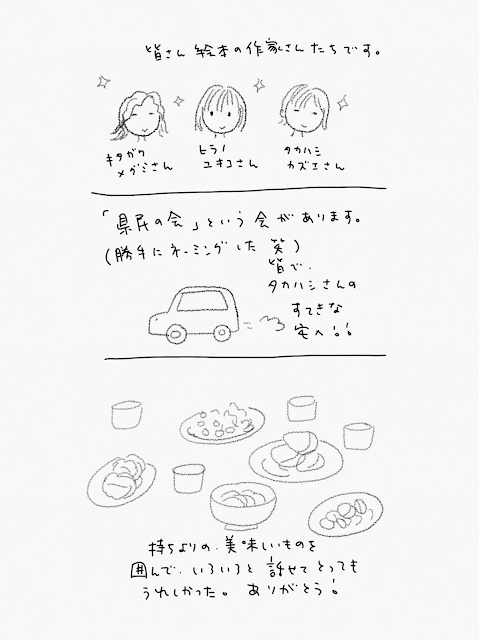 皆さん 絵本の作家さんたちです。
キタガワ
メグミさん
ヒラノ
ユキコさん
タカハシ
カズエさん
「県民の会」という会があります。
(勝手にネーミングした 笑)
皆で、
タカハシさんの
すてきな
宅へ!!
持ちよりの、美味しいものを
囲んで、いろいろと 話せてとっても
うれしかった。 ありがとう!